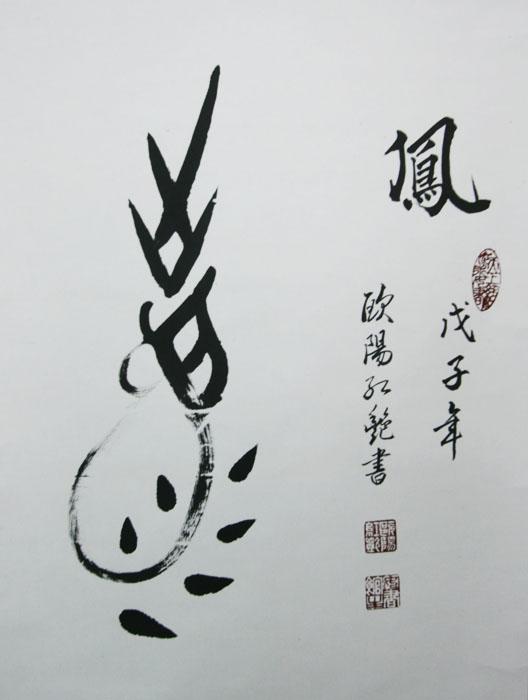 鳳
戊子年
歐陽红艷書